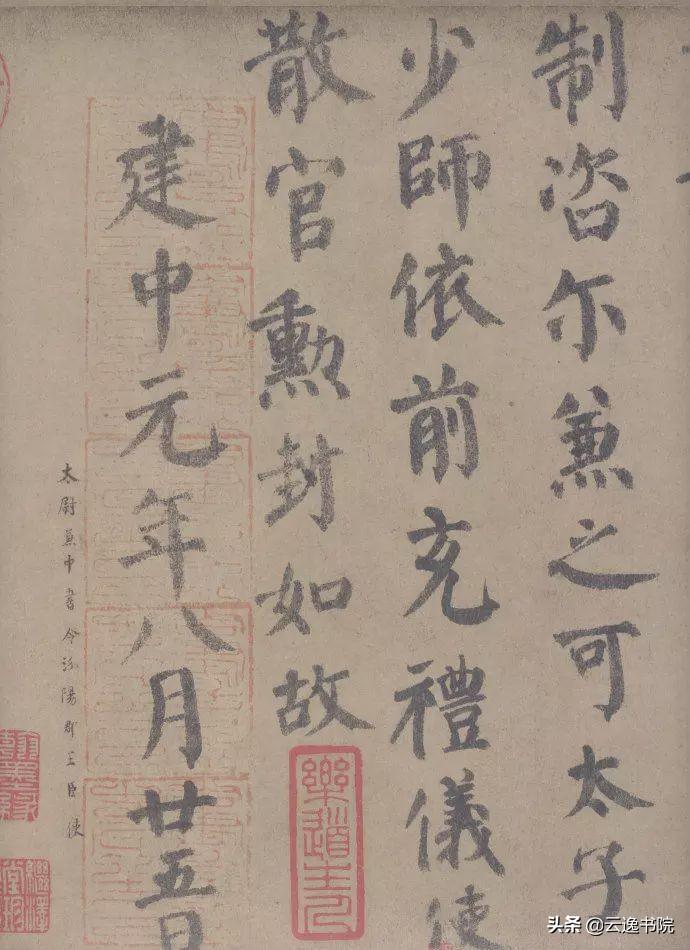 制咨尔兼之可太子
少師依前充禮儀使
散官勳封如故
建中元年八月廿五日
太尉兼中書令汾陽郡王臣使
樂道主人
头条 @云逸书院